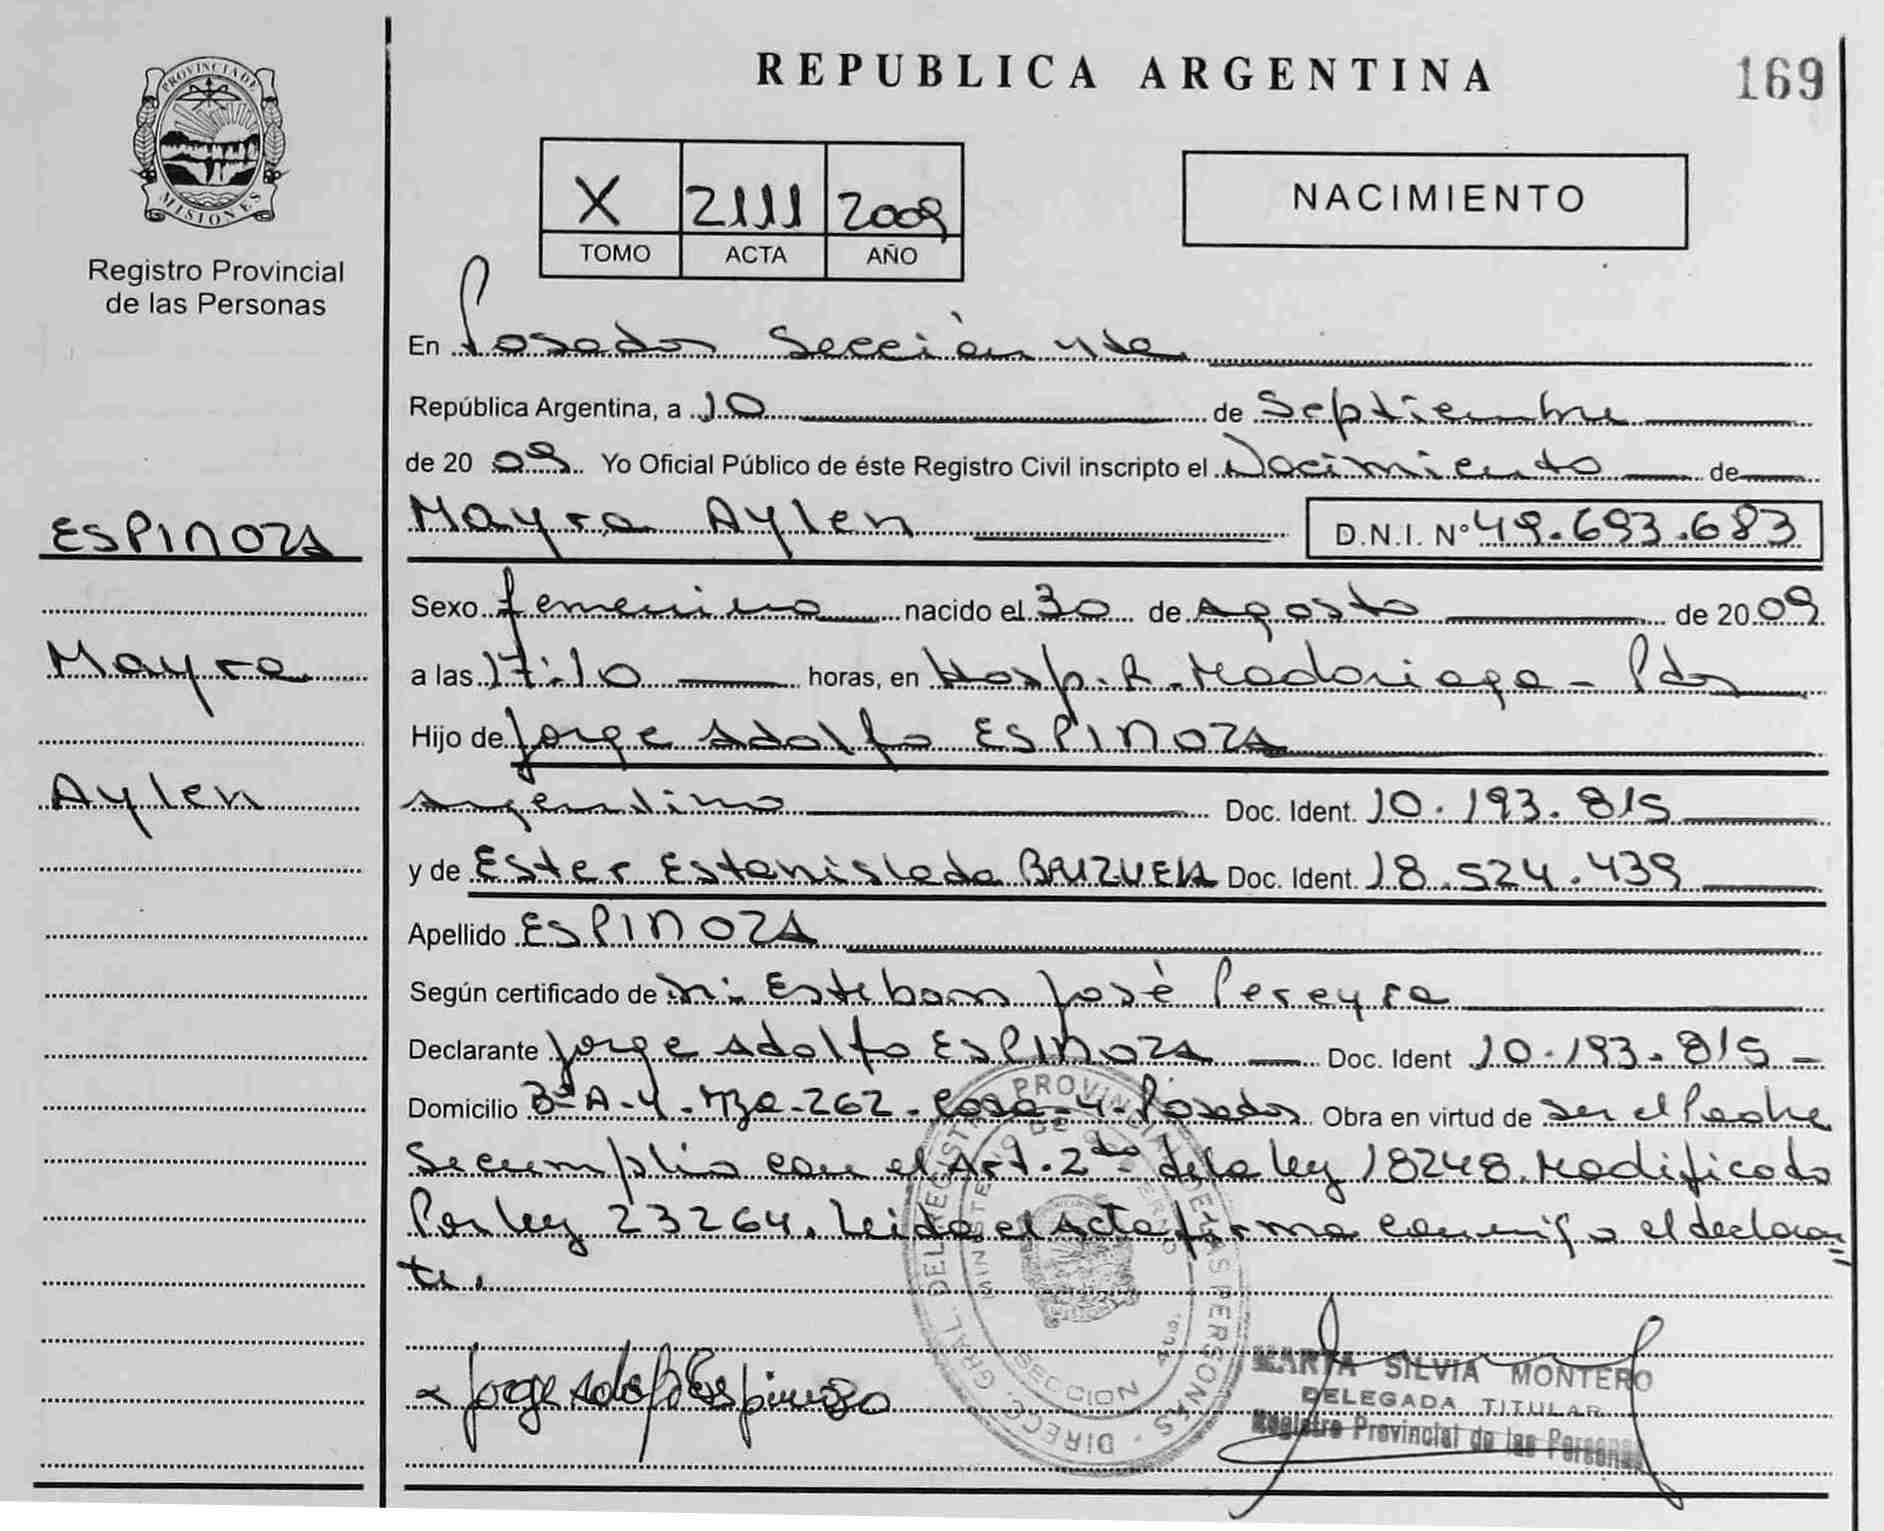 REPUBLICA ARGENTINA
169
PROVINCIA DE MISIONES
Registro Provincial
de las Personas
X 2111 2009
TOMO ACTA AÑO
NACIMIENTO
En Posadas Sección 4ta
República Argentina, a 10 de Septiembre
de 2009 Yo Oficial Público de éste Registro Civil inscripto el Nacimiento de
Mayra Aylen D.N.I. Nº 49.693.683
Sexo femenino nacido el 30 de Agosto de 2009
a las 17:10 horas, en Hosp. R. Madariaga - Pdas
Hijo de Jorge Adolfo ESPINOZA
argentino Doc. Ident. 10.193.815
y de Ester Estanislada BRIZUELA Doc. Ident. 18.524.439
Apellido ESPINOZA
Según certificado de Esteban José Pereyra
Declarante Jorge Adolfo ESPINOZA Doc. Ident 10.193.815
Domicilio Bº A-4. Mza-262. Casa-4-Posadas. Obra en virtud de ser el Padre
Se cumplió con el Art. 2do de la ley 18248. Modificado
Por ley 23264. Leida el Acta firma conmigo el declaran=
te.
Jorge Adolfo Espinoza
MARTA SILVIA MONTERO
DELEGADA TITULAR
Registro Provincial de las Personas
DIRECC. GRAL. DEL REGISTRO PROVINCIAL DE LAS PERSONAS
MINISTERIO DE GOBIERNO
SECCION 4ta.
ESPINOZA
Mayra
Aylen